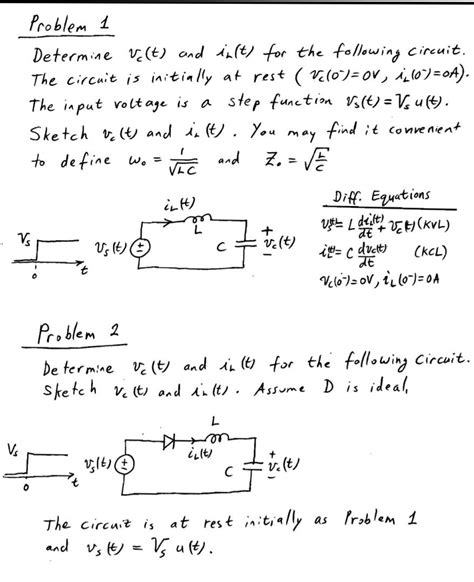 Problem 1
Determine v_c(t) and i_L(t) for the following circuit.
The circuit is initially at rest ( v_c(0⁻)=0V, i_L(0⁻)=0A).
The input voltage is a step function v_s(t)=V_s u(t).
Sketch v_c(t) and i_L(t). You may find it convenient
to define ω₀ = 1/√LC and Z₀ = √L/C
Diff. Equations
v_s(t)= L di_L(t)/dt + v_c(t) (KVL)
i_L(t)= C dv_c(t)/dt (KCL)
v_c(0⁻)=0V, i_L(0⁻)=0A
i_L(t)
L
V_s
0
t
v_s(t)
+
-
C
+
v_c(t)
-
Problem 2
Determine v_c(t) and i_L(t) for the following circuit.
Sketch v_c(t) and i_L(t). Assume D is ideal,
L
i_L(t)
V_s
0
t
v_s(t)
+
-
C
+
v_c(t)
-
The circuit is at rest initially as Problem 1
and v_s(t) = V_s u(t).